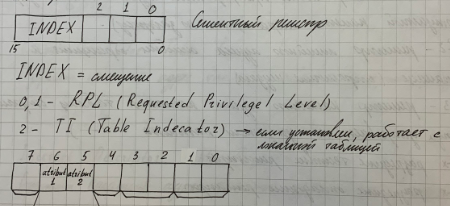 2 1 0
INDEX Сегментный регистр
15 0
INDEX = смещение
0,1 - RPL (Requested Privilegel Level)
2 - TI (Table Indecator) → если установлен, работает с
локальной таблицей
7 6 5 4 3 2 1 0
atribut 1 atribut 2